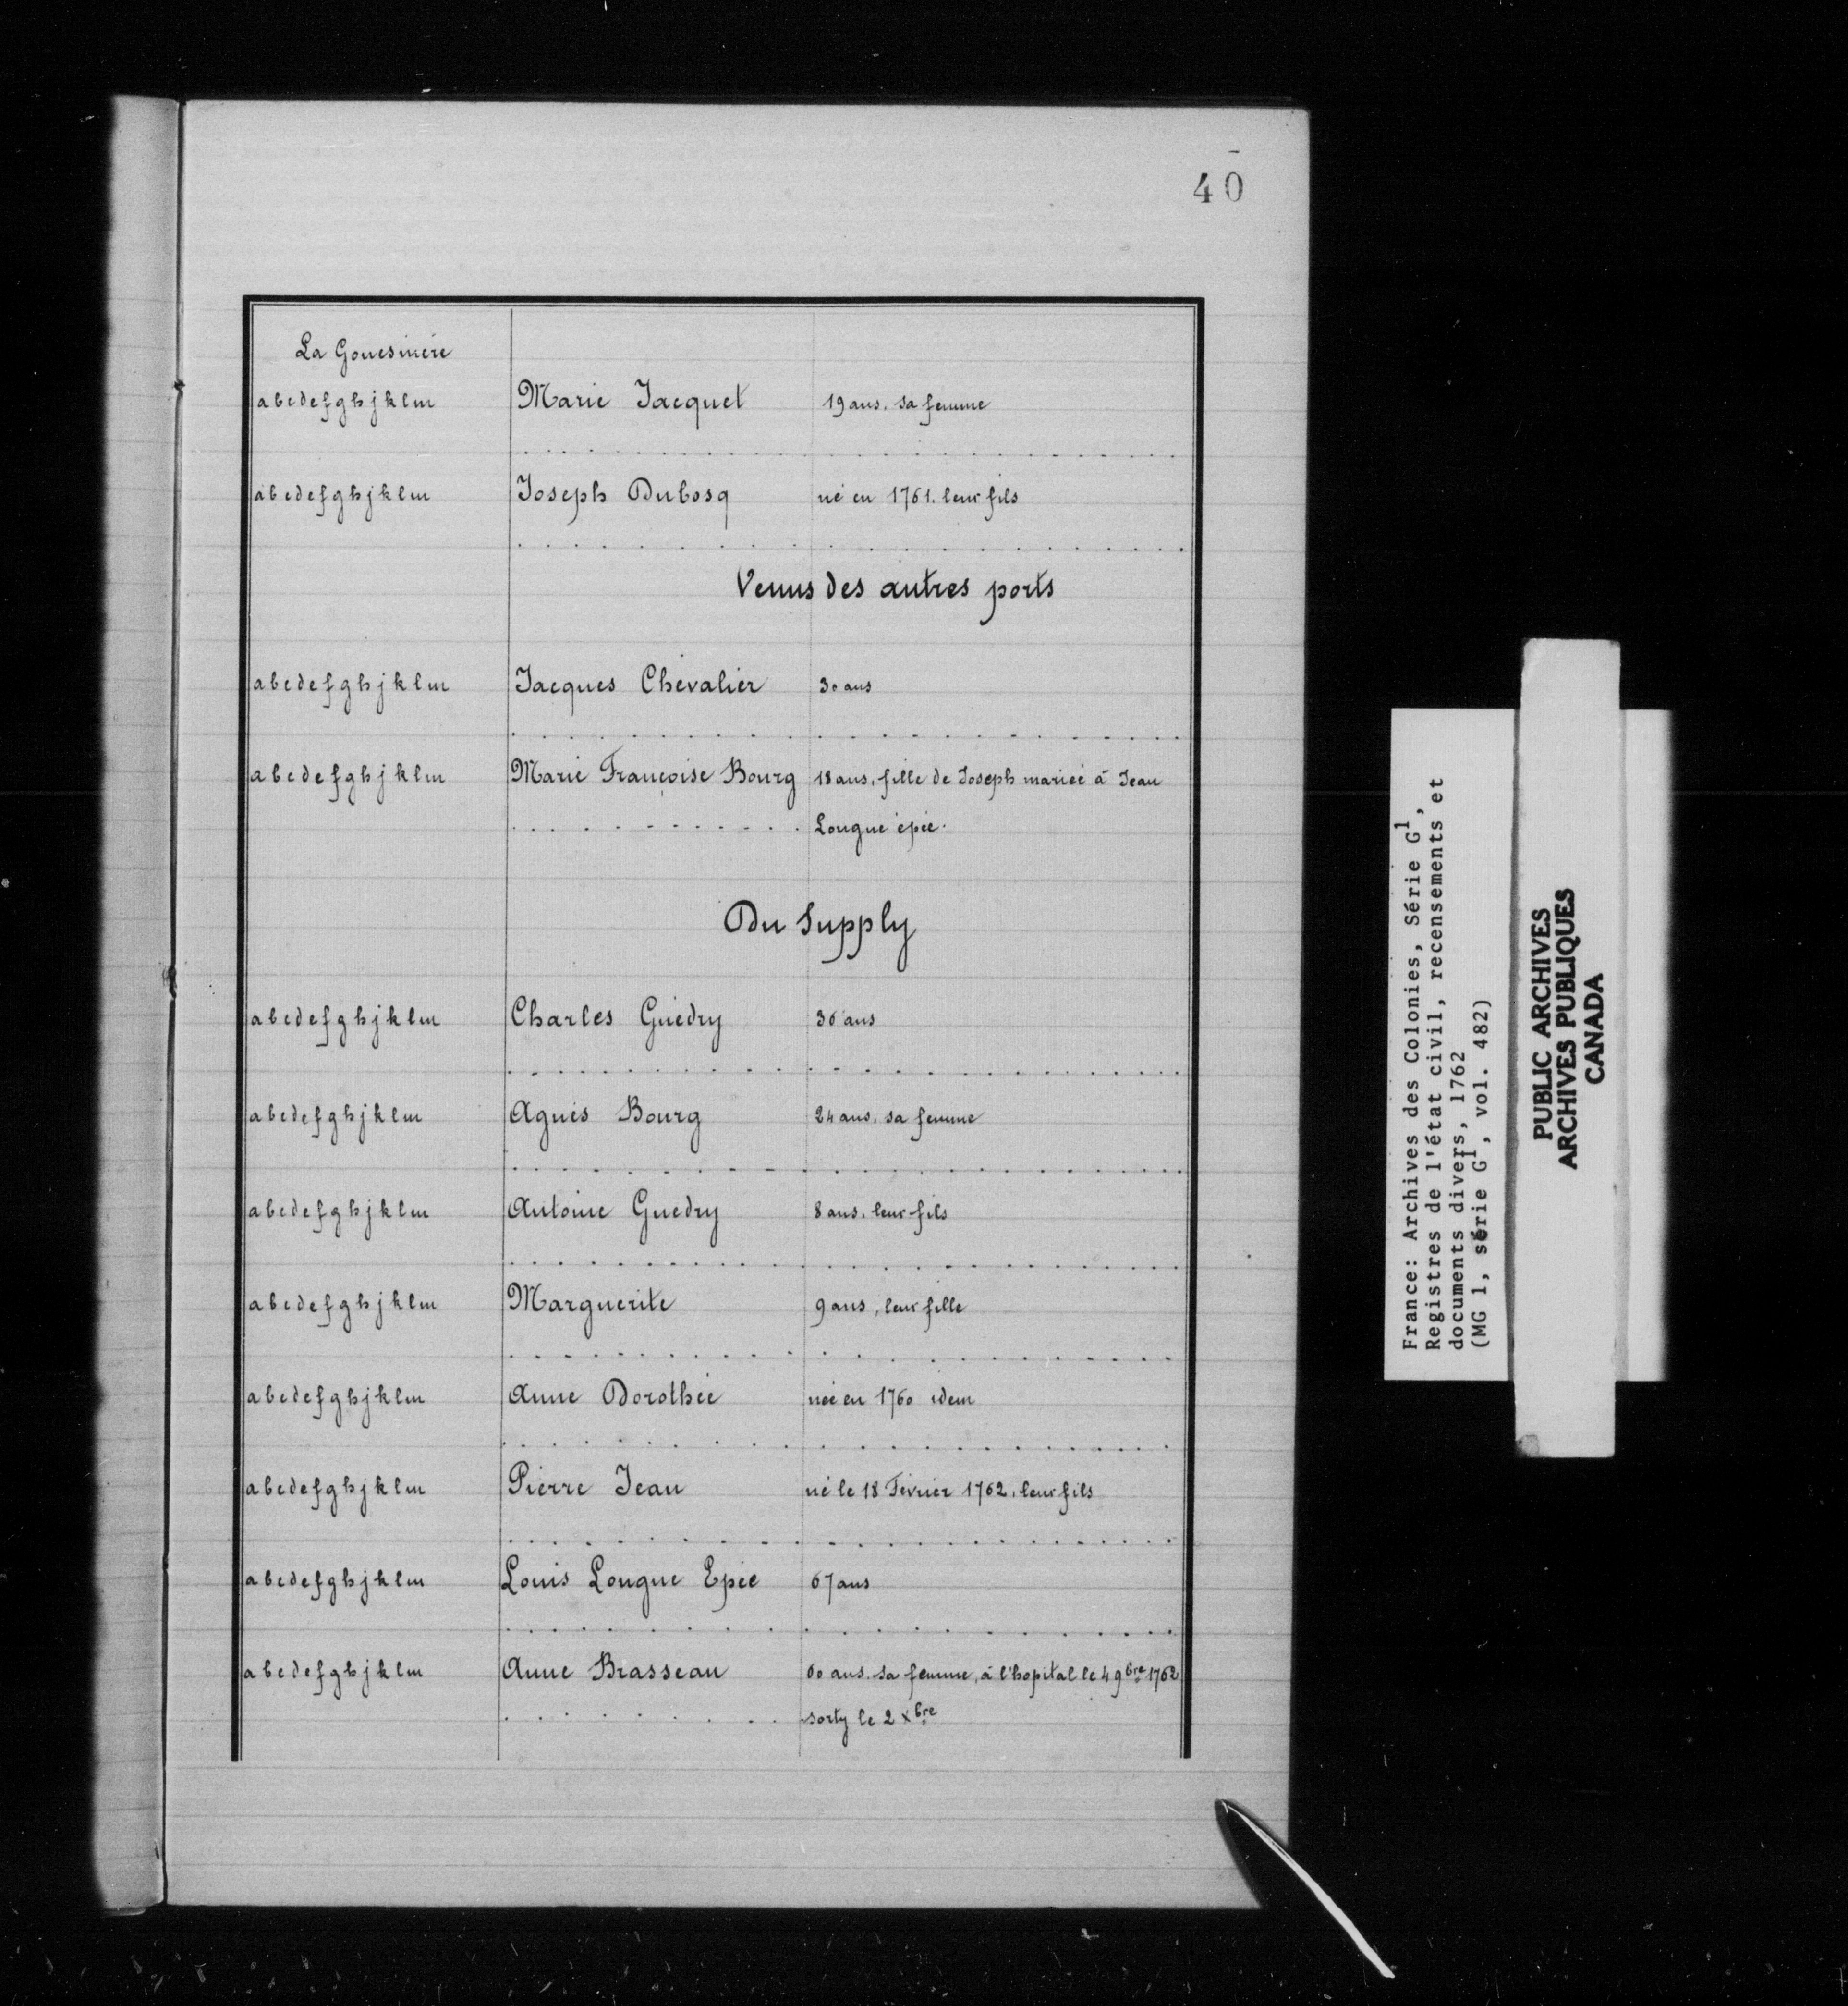 40
La Gouesnière
abcdefghjklm Marie Jacquet 19 ans. sa femme
abcdefghjklm Joseph Dubosq né en 1761. leur fils
Venus des autres ports
abcdefghjklm Jacques Chevalier 30 ans
abcdefghjklm Marie Françoise Bourg 18 ans, fille de Joseph mariée à Jean
Longue épée.
Du Supply
abcdefghjklm Charles Guédry 36 ans
abcdefghjklm Agnès Bourg 24 ans. sa femme
abcdefghjklm Antoine Guédry 8 ans. leur fils
abcdefghjklm Marguerite 9 ans, leur fille
abcdefghjklm Anne Dorothée née en 1760 idem
abcdefghjklm Pierre Jean né le 18 Février 1762. leur fils
abcdefghjklm Louis Longue Epée 67 ans
abcdefghjklm Anne Brasseau 60 ans. sa femme, à l'hopital le 4 9bre 1762
sorty le 2 xbre
France: Archives des Colonies, Série G1,
Registres de l'état civil, recensements et
documents divers, 1762
(MG 1, série G1, vol. 482)
PUBLIC ARCHIVES
ARCHIVES PUBLIQUES
CANADA